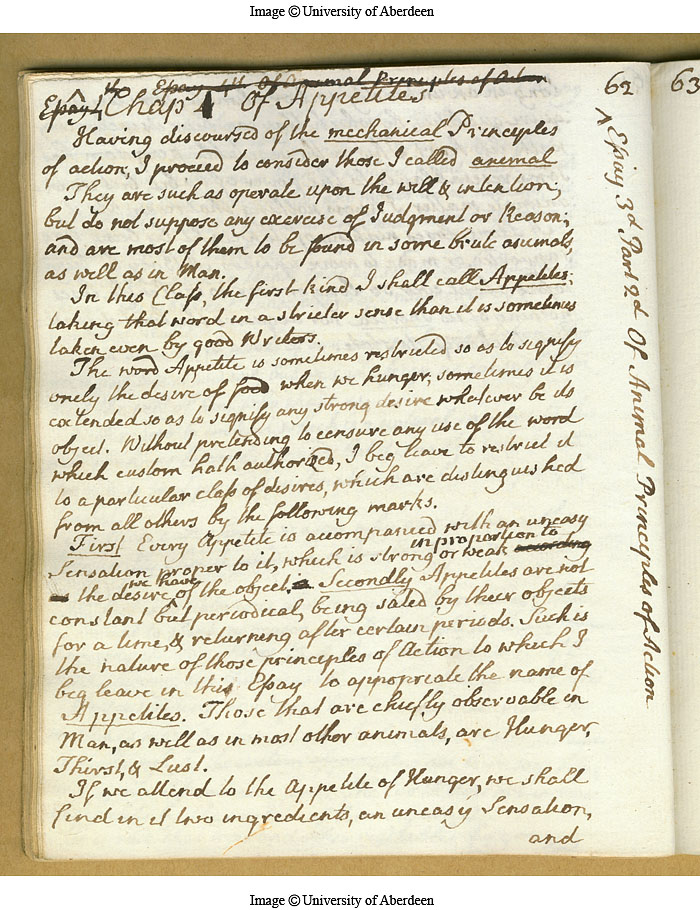 Image © University of Aberdeen
62
63
Essay 4th Of Animal Principles of Action
Essay 4th Chap 1 Of Appetites
Having discoursed of the mechanical Principles
of action, I proceed to consider those I called animal
They are such as operate upon the will & intention;
but do not suppose any exercise of Judgment or Reason;
and are most of them to be found in some brute animals,
as well as in Man.
In this Class, the first kind I shall call Appetites;
taking that word in a stricter sense than it is sometimes
taken even by good Writers.
The word Appetite is sometimes restricted so as to signify
onely the desire of food when we hunger; sometimes it is
extended so as to signify any strong desire whatever be its
object. Without pretending to censure any use of the word
which custom hath authorized, I beg leave to restrict it
to a particular class of desires, which are distinguished
from all others by the following marks.
First Every Appetite is accompanied with an uneasy
Sensation proper to it, which is strong or weak according
in proportion to
the desire we have of the object. Secondly Appetites are not
constant but periodical, being sated by their objects
for a time, & returning after certain periods. Such is
the nature of those principles of Action to which I
beg leave in this Essay to appropriate the name of
Appetites. Those that are chiefly observable in
Man, as well as in most other animals, are Hunger,
Thirst, & Lust.
If we attend to the Appetite of Hunger, we shall
find in it two ingredients, an uneasy Sensation,
and
^ Essay 3d Part 2d Of Animal Principles of Action
Image © University of Aberdeen